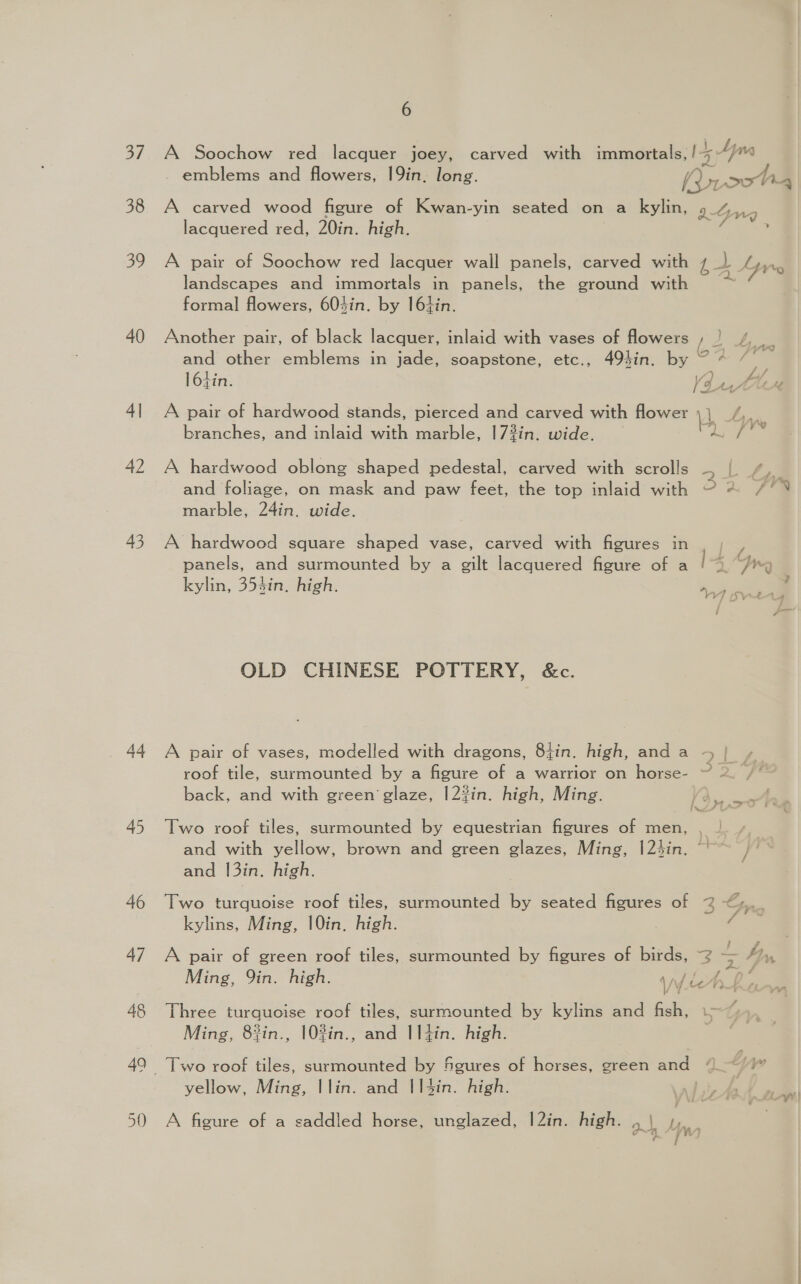 6
37 A Soochow red lacquer joey, carved with immortals,
emblems and flowers, 19in. long.
38 A carved wood figure of Kwan-yin seated on a kylin,
lacquered red, 20in. high.
39 A pair of Soochow red lacquer wall panels, carved with
landscapes and immortals in panels, the ground with
formal flowers, 60½in. by 16¼in.
40 Another pair, of black lacquer, inlaid with vases of flowers
and other emblems in jade, soapstone, etc., 49½in. by
16¼in.
41 A pair of hardwood stands, pierced and carved with flower
branches, and inlaid with marble, 17¾in. wide.
42 A hardwood oblong shaped pedestal, carved with scrolls
and foliage, on mask and paw feet, the top inlaid with
marble, 24in. wide.
43 A hardwood square shaped vase, carved with figures in
panels, and surmounted by a gilt lacquered figure of a
kylin, 35½in. high.
OLD CHINESE POTTERY, &c.
44 A pair of vases, modelled with dragons, 8¼in. high, and a
roof tile, surmounted by a figure of a warrior on horse-
back, and with green glaze, 12¾in. high, Ming.
45 Two roof tiles, surmounted by equestrian figures of men,
and with yellow, brown and green glazes, Ming, 12½in.
and 13in. high.
46 Two turquoise roof tiles, surmounted by seated figures of
kylins, Ming, 10in. high.
47 A pair of green roof tiles, surmounted by figures of birds,
Ming, 9in. high.
48 Three turquoise roof tiles, surmounted by kylins and fish,
Ming, 8¾in., 10¾in., and 11¼in. high.
49 Two roof tiles, surmounted by figures of horses, green and
yellow, Ming, 11in. and 11½in. high.
50 A figure of a saddled horse, unglazed, 12in. high.